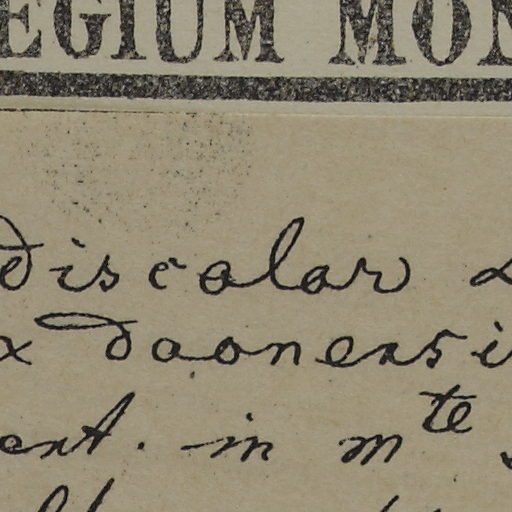 EGIUM MON
discolor
x daonensi
ent. in m^te